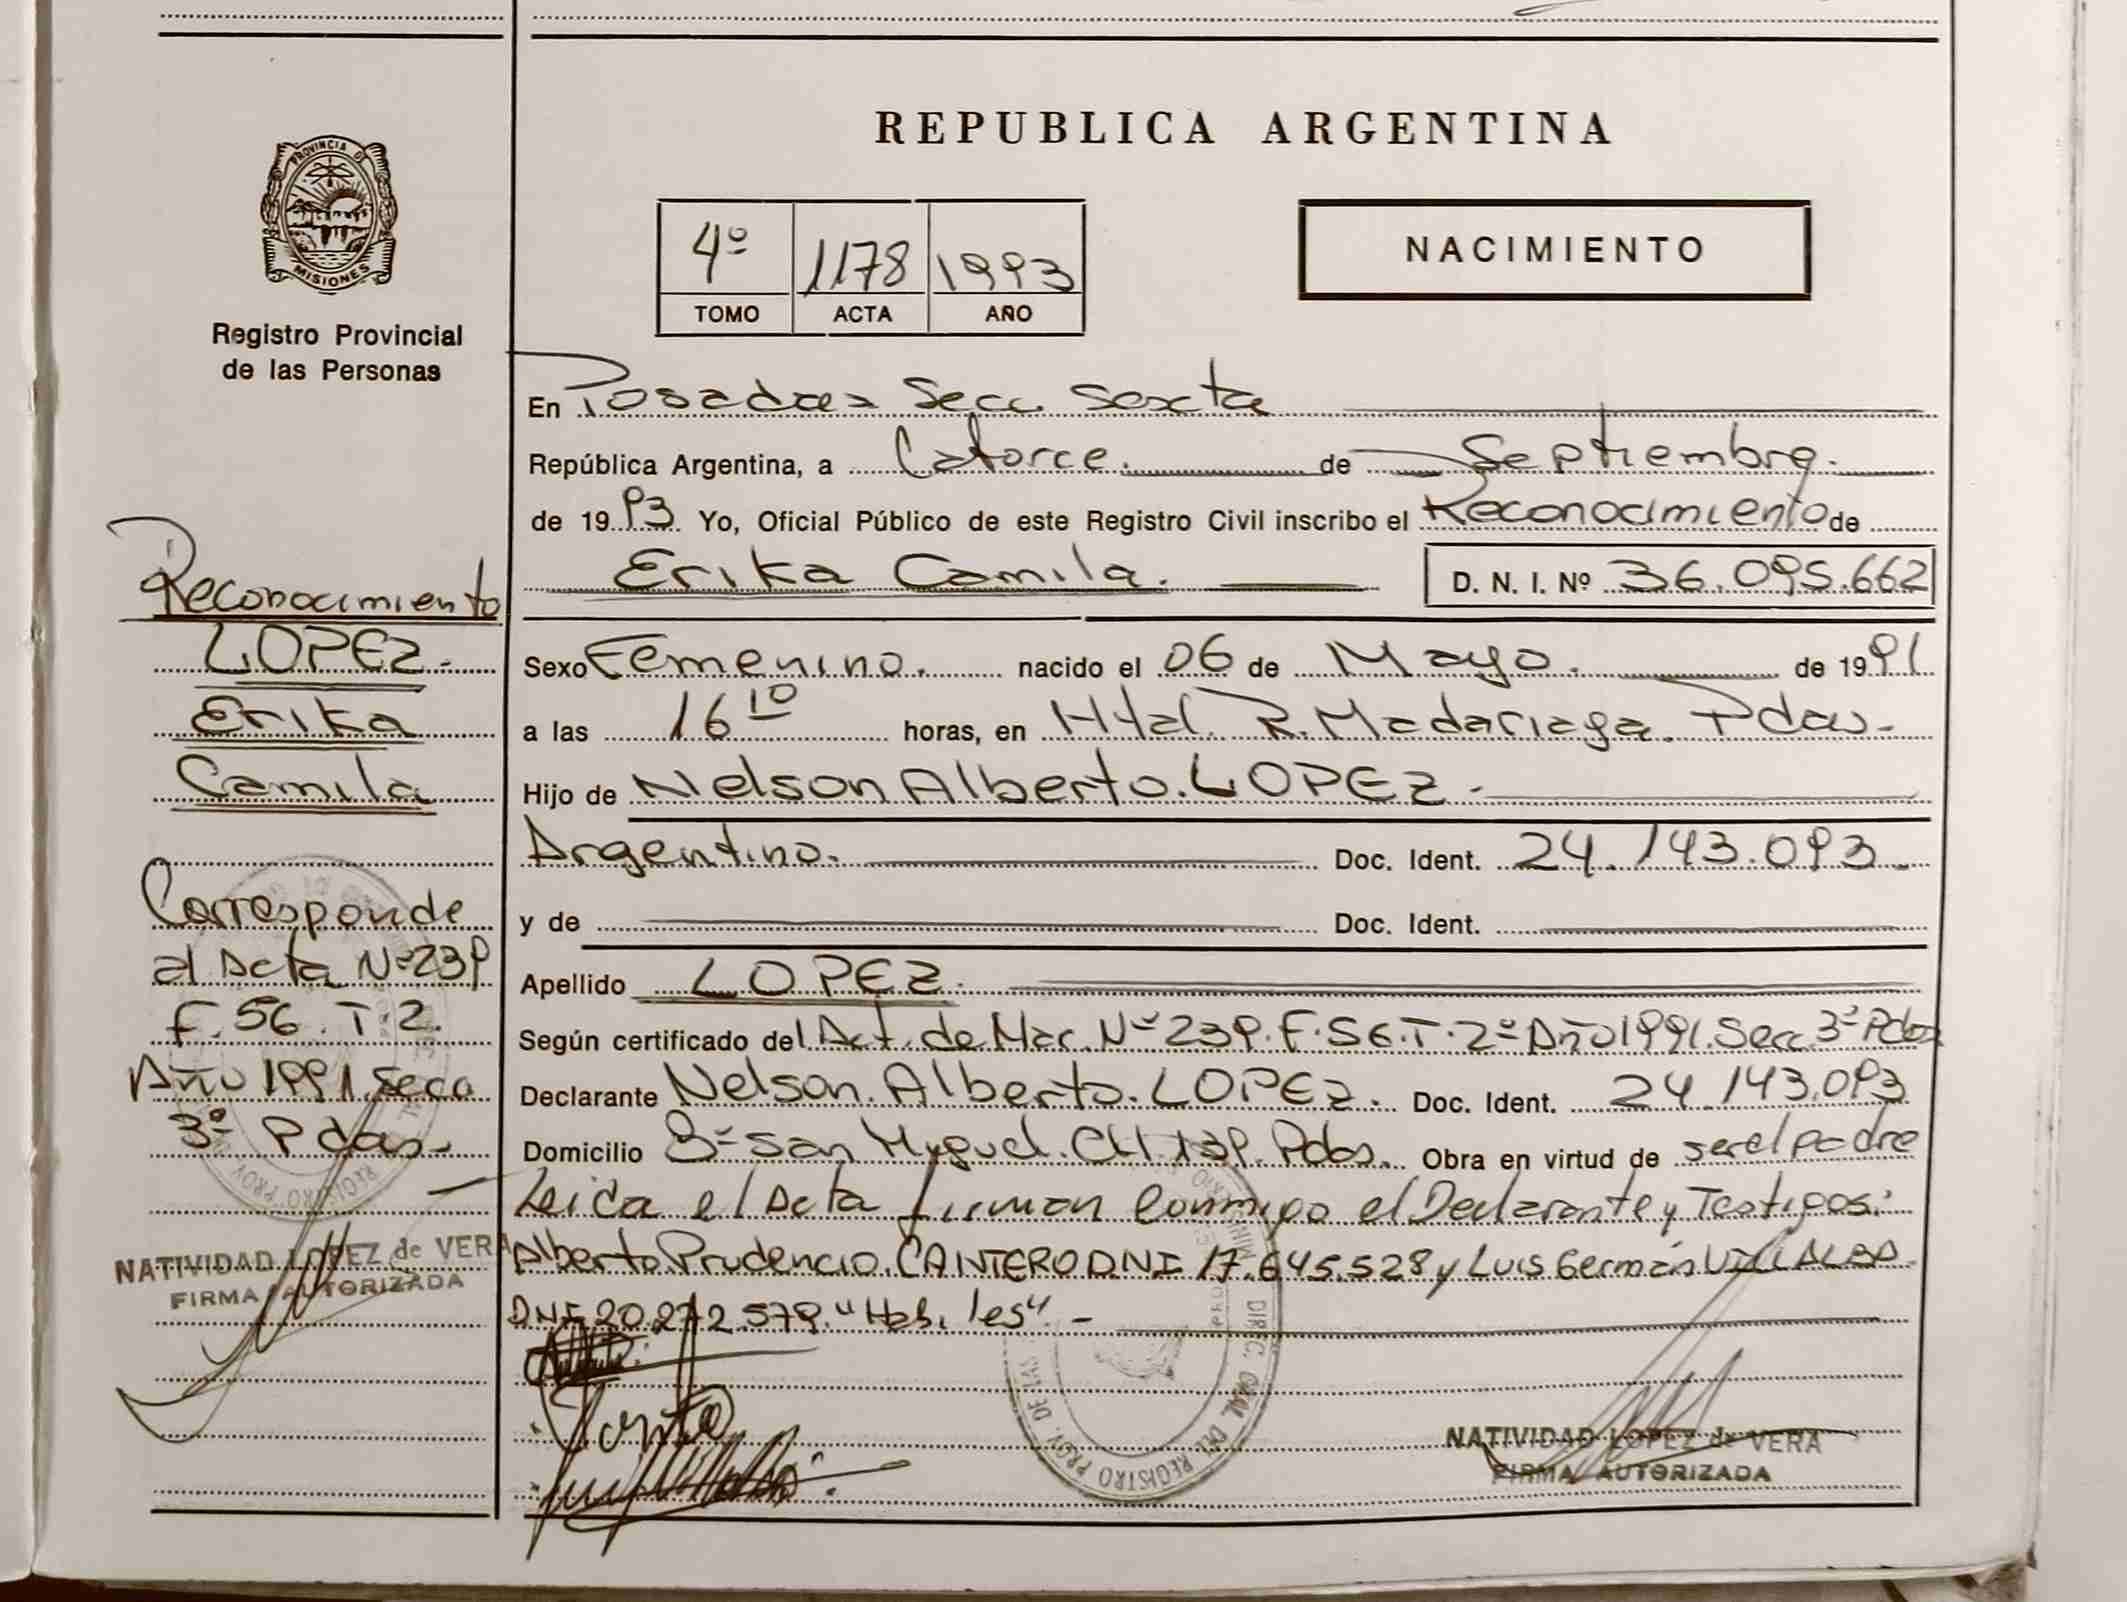 PROVINCIA DE
MISIONES
Registro Provincial
de las Personas
Reconocimiento
LOPEZ.
Erika
Camila
Corresponde
al Acta Nº 239
F. 56. T. 2.
Año 1991. Secc
3ª Pdas.
NATIVIDAD LOPEZ de VERA
FIRMA AUTORIZADA
REPUBLICA ARGENTINA
4º 1178 1993
TOMO ACTA AÑO
NACIMIENTO
En Posadas Secc. Sexta
República Argentina, a Catorce. de Septiembre.
de 1993 Yo, Oficial Público de este Registro Civil inscribo el Reconocimiento de
Erika Camila. D. N. I. Nº 36.095.662
Sexo Femenino. nacido el 06 de Mayo. de 1991
a las 16 10 horas, en Htal. R. Madariaga. Pdas.
Hijo de Nelson Alberto. LOPEZ.
Argentino. Doc. Ident. 24.143.093
y de Doc. Ident.
Apellido LOPEZ.
Según certificado del Act. de Nac. Nº 239. F. 56. T. 2º Año 1991. Secc. 3ª Pdas
Declarante Nelson. Alberto. LOPEZ. Doc. Ident. 24.143.093
Domicilio Bº San Myguel. CH. 139. Pdas. Obra en virtud de ser el padre
Leida el Acta firman conmigo el Declarante y Testigos:
Alberto Prudencio. CANTERO DNI 17.645.528 y Luis Germán VILLALBA
DNI 20.272.579. "Hab. les". -
NATIVIDAD LOPEZ de VERA
FIRMA AUTORIZADA